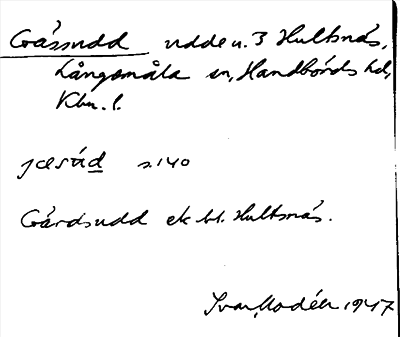 Gåssudd udde u. 3 Hultsnäs,
Långemåla sn, Handbörds hd,
Kbn. l.
jɶsúd s. 140
Gårdsudd ek bl. Hultsnäs.
Ivar Modéer 1947